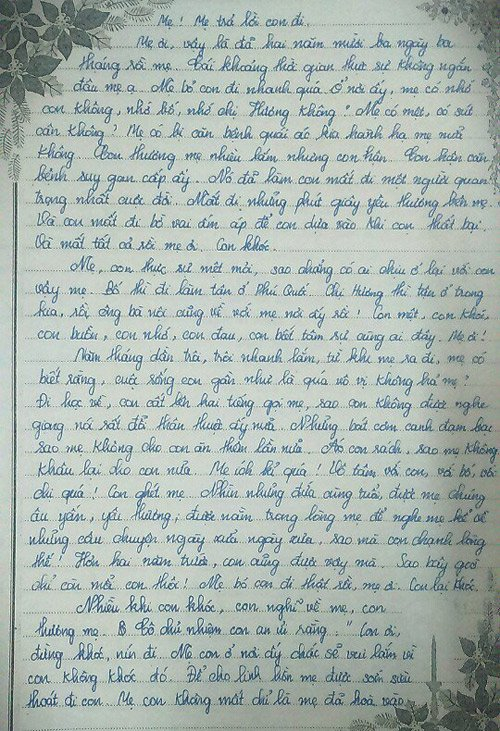 Mẹ! Mẹ trả lời con đi.
Mẹ ơi, vậy là đã hai năm mười ba ngày ba
tháng rồi mẹ. Cái khoảng thời gian thực sự không ngắn
đâu mẹ ạ. Mẹ bỏ con đi nhanh quá. Ở nơi ấy, mẹ có nhớ
con không, nhớ bố, nhớ chị Hương không? Mẹ có mệt, có sút
cân không? Mẹ có bị căn bệnh quái ác kia hành hạ mẹ nữa
không. Con thương mẹ nhiều lắm nhưng con hận. Con hận căn
bệnh suy gan cấp ấy. Nó đã làm con mất đi một người quan
trọng nhất cuộc đời. Mất đi những phút giây yêu thương bên mẹ.
Và con mất đi bờ vai ấm áp để con dựa vào khi con thất bại.
Và mất tất cả rồi mẹ ơi. Con khóc.
Mẹ, con thực sự mệt mỏi, sao chẳng có ai chịu ở lại với con
vậy mẹ. Bố thì đi làm tận ở Phú Quới. Chị Hương thì tận ở trong
kia, rồi ông bà nội cũng về với mẹ nơi ấy rồi! Con mệt, con khóc,
con buồn, con nhớ, con đau, con biết tâm sự cùng ai đây. Mẹ ơi!
Năm tháng dần trôi, trôi nhanh lắm, từ khi mẹ ra đi, mẹ có
biết rằng, cuộc sống con gần như là quá vô vị không hả mẹ?
Đi học về, con cất lên hai tiếng gọi mẹ, sao con không được nghe
giọng nói rất đỗi thân thuyệt ấy nữa. Những bữa cơm canh đạm bạc
sao mẹ không cho con ăn thêm lần nữa. Áo con rách, sao mẹ không
khâu lại cho con nữa. Mẹ ích kỉ quá! Vô tâm với con, với bố, với
chị quá! Con ghét mẹ. Nhìn những đứa cùng tuổi, được mẹ chúng
âu yếm, yêu thương, được nằm trong lòng mẹ để nghe mẹ kể về
những câu chuyện ngày xửa ngày xưa, sao mà con chạnh lòng
thế! Hơn hai năm trước, con cũng được vậy mà. Sao bây giờ
chỉ còn mỗi con thôi! Mẹ bỏ con đi thật rồi, mẹ ơi. Con lại khóc.
Nhiều khi con khóc, con nghĩ về mẹ, con
thương mẹ. Cô chủ nhiệm con an ủi rằng: "Con ơi,
đừng khóc, nín đi. Mẹ con ở nơi ấy chắc sẽ vui lắm vì
con không khóc đó. Để cho linh hồn mẹ được sớm siêu
thoát đi con. Mẹ con không mất chỉ là mẹ đã hoà vào